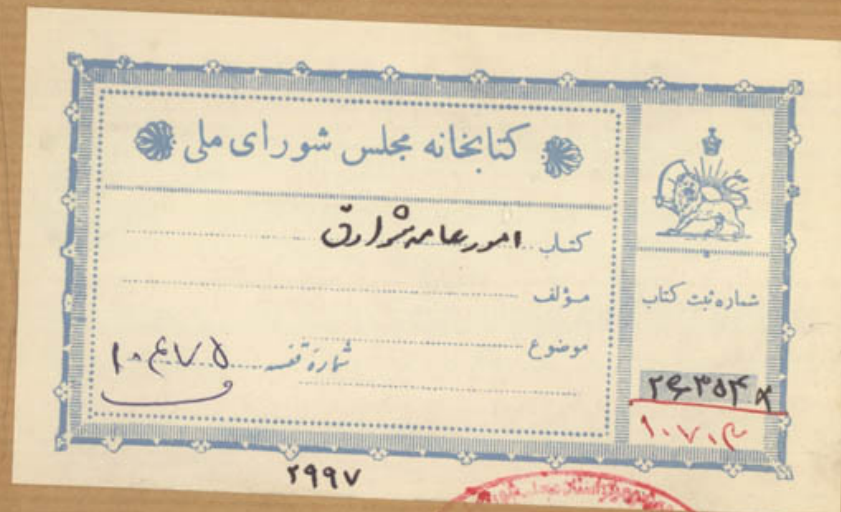 کتابخانه مجلس شورای ملی
کتاب امور عامه شوارق
مؤلف
موضوع
شمارهٔ قفسه ۱۰۴۷۵
شماره ثبت کتاب
۱۰۷۰۳
۲۹۹۷